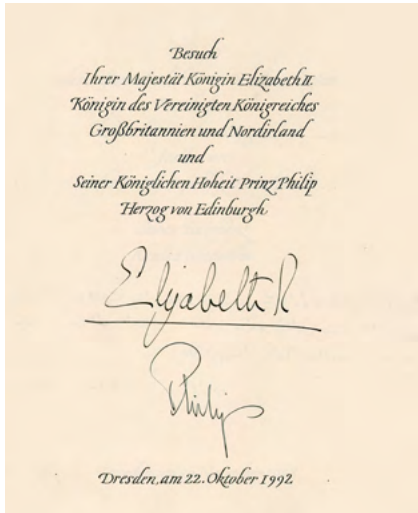 Besuch
Ihrer Majestät Königin Elizabeth II.
Königin des Vereinigten Königreiches
Großbritannien und Nordirland
und
Seiner Königlichen Hoheit Prinz Philip
Herzog von Edinburgh
Elizabeth R
Philip
Dresden, am 22. Oktober 1992